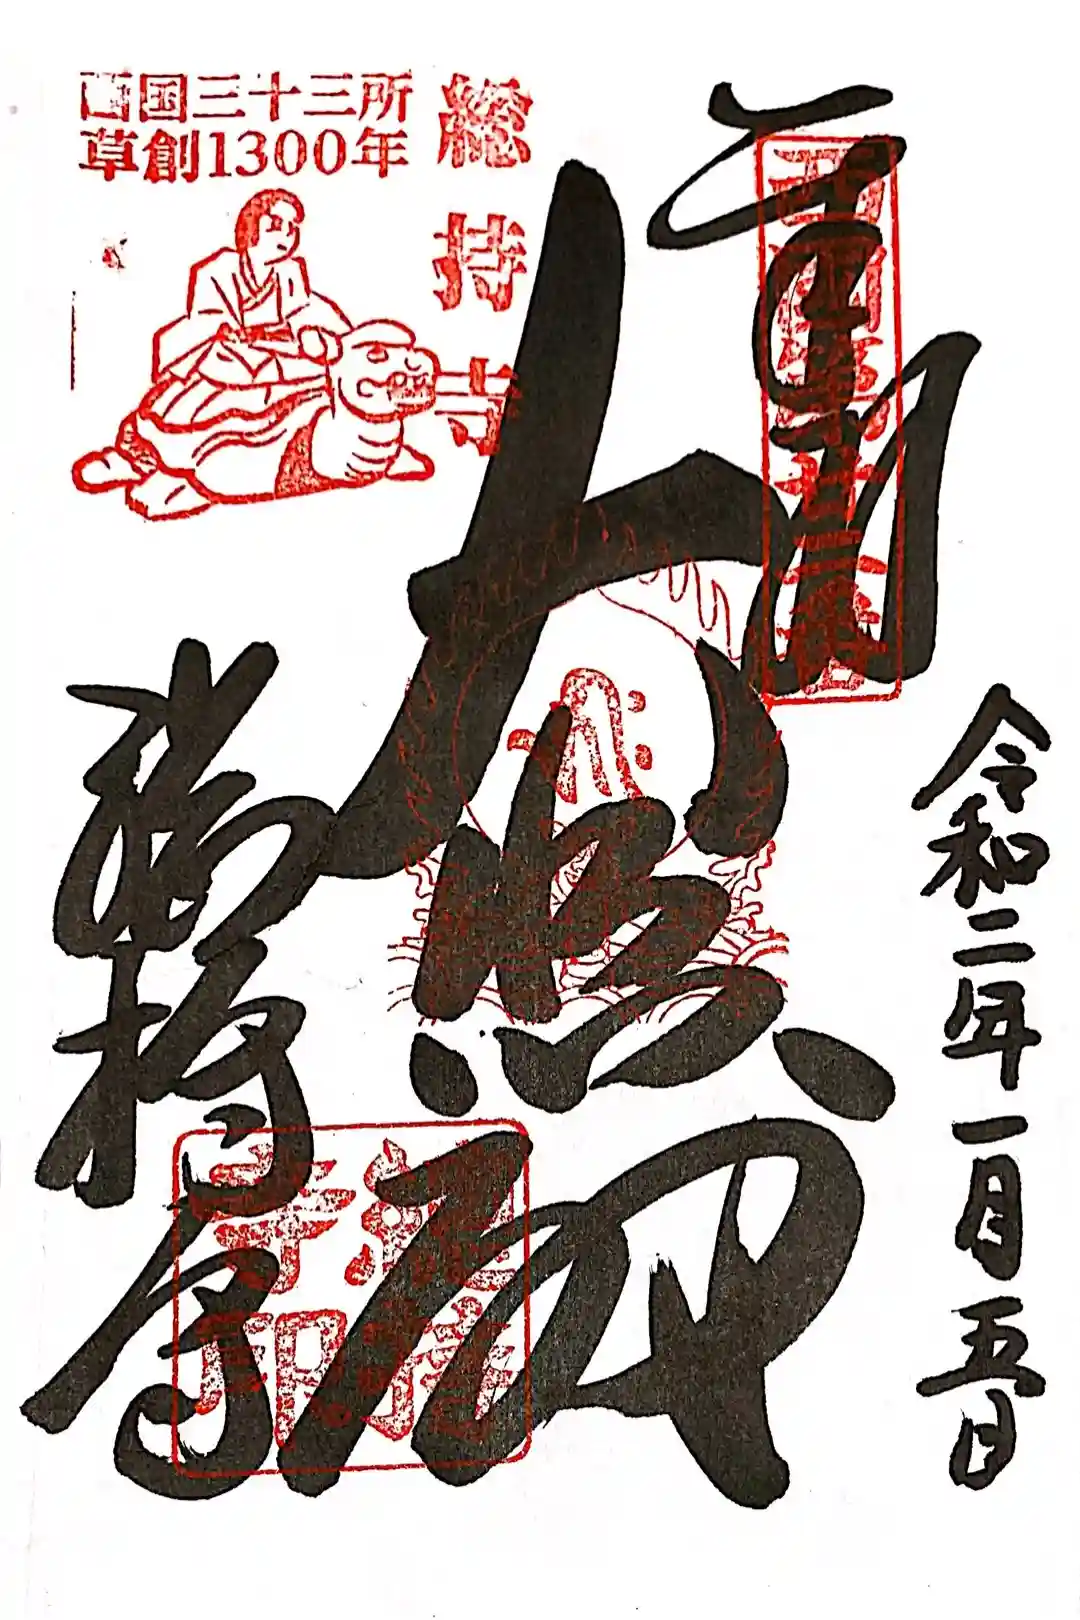 西国三十三所
草創1300年
総持寺
奉拝
西国第廿二番
令和二年一月五日
大悲殿
総持寺
総持寺印